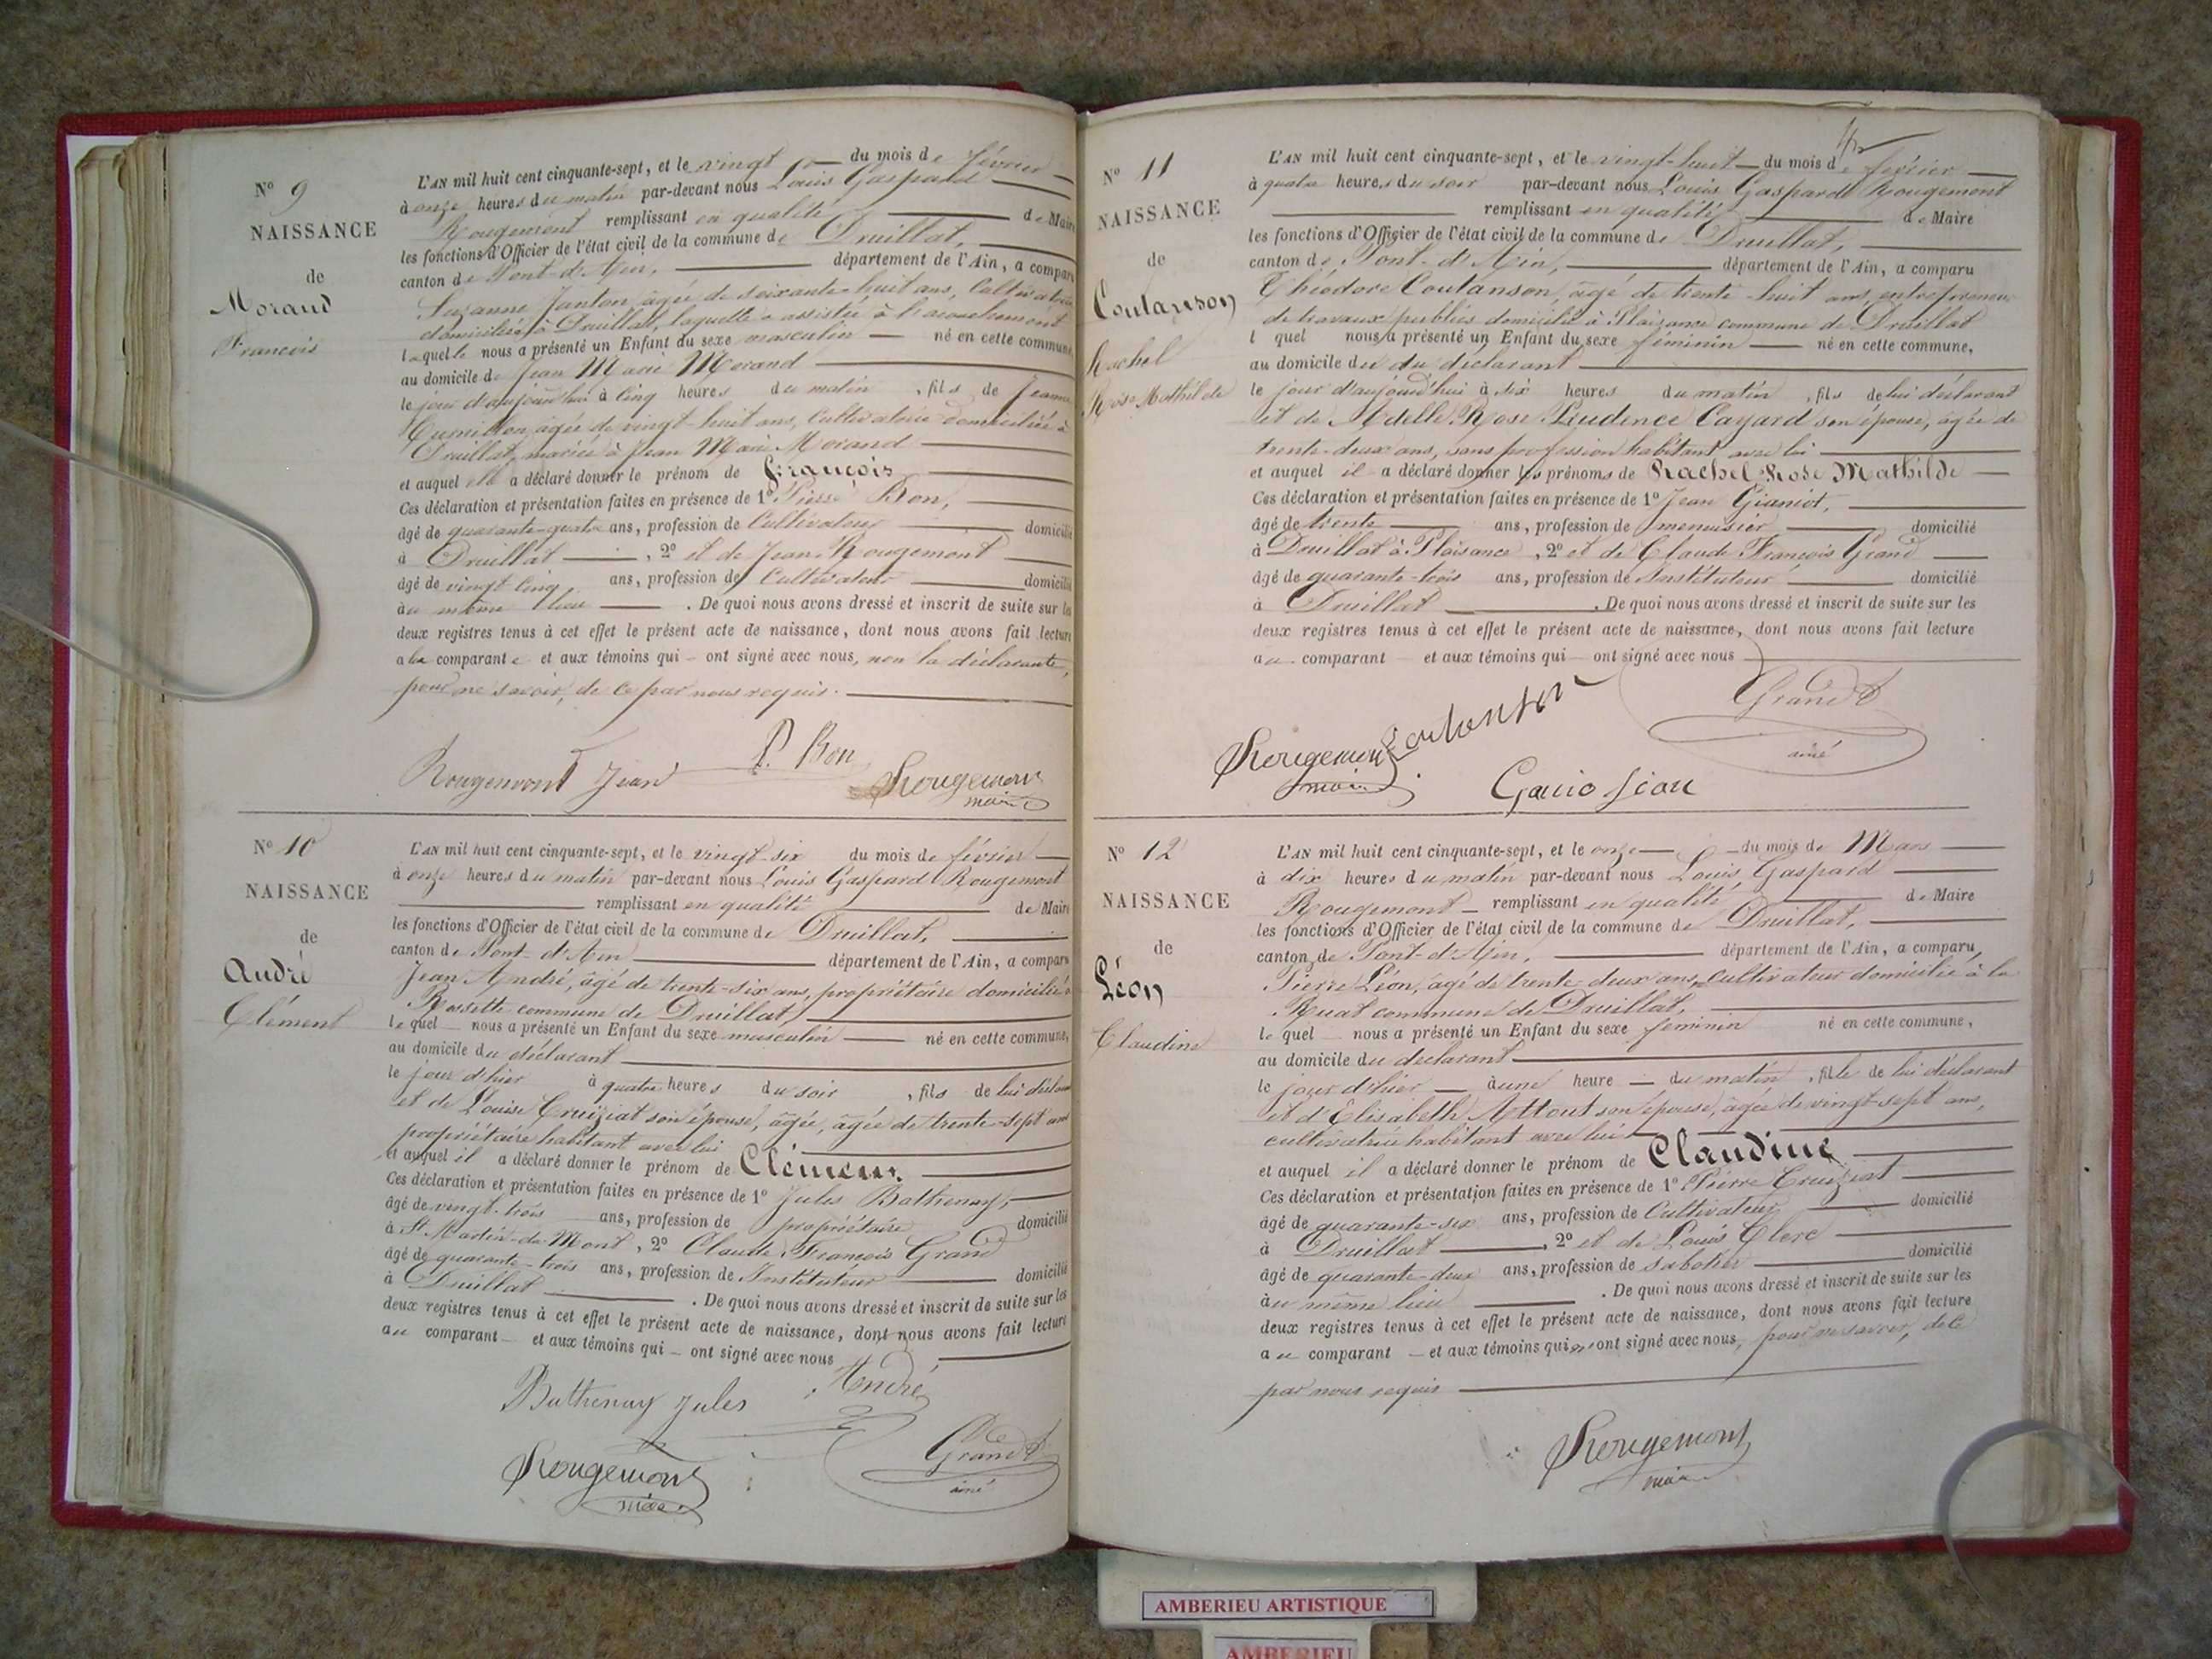 N° 9
NAISSANCE
de
Morand
François
L'AN mil huit cent cinquante-sept, et le vingt du mois de février
à onze heures du matin par-devant nous Louis Gaspard
Rougemont remplissant en qualité de Maire
les fonctions d'Officier de l'état civil de la commune de Druillat,
canton de Pont-d'Ain, département de l'Ain, a comparu
Suzanne Janton, âgée de soixante-huit ans, cultivatrice
domiciliée à Druillat, laquelle a assistée à l'accouchement
laquelle nous a présenté un Enfant du sexe masculin né en cette commune,
au domicile de Jean Marie Morand
le jour d'aujourd'hui à cinq heures du matin, fils de Jeanne
âgée de vingt-huit ans, cultivatrice domiciliée à
Druillat, mariée à Jean Marie Morand
et auquel elle a déclaré donner le prénom de François
Ces déclaration et présentation faites en présence de 1° Pierre Bon,
âgé de quarante-quatre ans, profession de Cultivateur domicilié
à Druillat, 2° et de Jean Rougemont
âgé de vingt cinq ans, profession de Cultivateur domicilié
au même lieu. De quoi nous avons dressé et inscrit de suite sur les
deux registres tenus à cet effet le présent acte de naissance, dont nous avons fait lecture
a la comparante et aux témoins qui ont signé avec nous, non la déclarante,
pour ne savoir, de ce par nous requis.
Rougemont Jean P. Bon Rougemont
maire
N° 10
NAISSANCE
de
André
Clément
L'AN mil huit cent cinquante-sept, et le vingt-six du mois de février
à onze heures du matin par-devant nous Louis Gaspard Rougemont
remplissant en qualité de Maire
les fonctions d'Officier de l'état civil de la commune de Druillat,
canton de Pont-d'Ain département de l'Ain, a comparu
Jean André, âgé de trente-six ans, propriétaire domicilié à
Rossette commune de Druillat,
lequel nous a présenté un Enfant du sexe masculin né en cette commune,
au domicile du déclarant
le jour d'hier à quatre heures du soir, fils de lui déclarant
et de Louise Cruiziat son épouse, âgée, âgée de trente-sept ans
propriétaire habitant avec lui
et auquel il a déclaré donner le prénom de Clément.
Ces déclaration et présentation faites en présence de 1° Jules Bathenay,
âgé de vingt-trois ans, profession de propriétaire domicilié
à St Martin-du-Mont, 2° Claude François Grand
âgé de quarante-trois ans, profession de Instituteur domicilié
à Druillat. De quoi nous avons dressé et inscrit de suite sur les
deux registres tenus à cet effet le présent acte de naissance, dont nous avons fait lecture
au comparant et aux témoins qui ont signé avec nous
Bathenay Jules André
Rougemont Grand
maire aîné
N° 11
NAISSANCE
de
Coutanson
Rachel
Rose Mathilde
L'AN mil huit cent cinquante-sept, et le vingt-huit du mois de février
à quatre heures du soir par-devant nous Louis Gaspard Rougemont
remplissant en qualité de Maire
les fonctions d'Officier de l'état civil de la commune de Druillat,
canton de Pont-d'Ain, département de l'Ain, a comparu
Théodore Coutanson, âgé de trente-huit ans, entrepreneur
de travaux publics domicilié à Plaisance commune de Druillat
lquel nous a présenté un Enfant du sexe féminin né en cette commune,
au domicile du du déclarant
le jour d'aujourd'hui à six heures du matin, fils de lui déclarant
et de Adelle Rose Prudence Cayard son épouse, âgée de
trente-deux ans, sans profession habitant avec lui
et auquel il a déclaré donner les prénoms de Rachel Rose Mathilde
Ces déclaration et présentation faites en présence de 1° Jean
âgé de trente ans, profession de menuisier domicilié
à Druillat à Plaisance, 2° et de Claude François Grand
âgé de quarante-trois ans, profession de Instituteur domicilié
à Druillat. De quoi nous avons dressé et inscrit de suite sur les
deux registres tenus à cet effet le présent acte de naissance, dont nous avons fait lecture
au comparant et aux témoins qui ont signé avec nous
Rougemont Coutanson Grand
maire aîné
N° 12
NAISSANCE
de
Léon
Claudine
L'AN mil huit cent cinquante-sept, et le onze du mois de Mars
à dix heures du matin par-devant nous Louis Gaspard
Rougemont remplissant en qualité de Maire
les fonctions d'Officier de l'état civil de la commune de Druillat,
canton de Pont-d'Ain, département de l'Ain, a comparu,
Pierre Léon, âgé de trente-deux ans, cultivateur domicilié à la
Ruat commune de Druillat,
lequel nous a présenté un Enfant du sexe féminin né en cette commune,
au domicile du déclarant
le jour d'hier à une heure du matin, fille de lui déclarant
et d'Elisabeth son épouse, âgée de vingt-sept ans,
cultivatrice habitant avec lui
et auquel il a déclaré donner le prénom de Claudine
Ces déclaration et présentation faites en présence de 1° Pierre Cruiziat
âgé de quarante-six ans, profession de Cultivateur domicilié
à Druillat, 2° et de Louis Clerc
âgé de quarante-deux ans, profession de sabotier domicilié
au même lieu. De quoi nous avons dressé et inscrit de suite sur les
deux registres tenus à cet effet le présent acte de naissance, dont nous avons fait lecture
au comparant et aux témoins qui ont signé avec nous, pour ne savoir, de ce
par nous requis
Rougemont
maire
AMBERIEU ARTISTIQUE
AMBERIEU